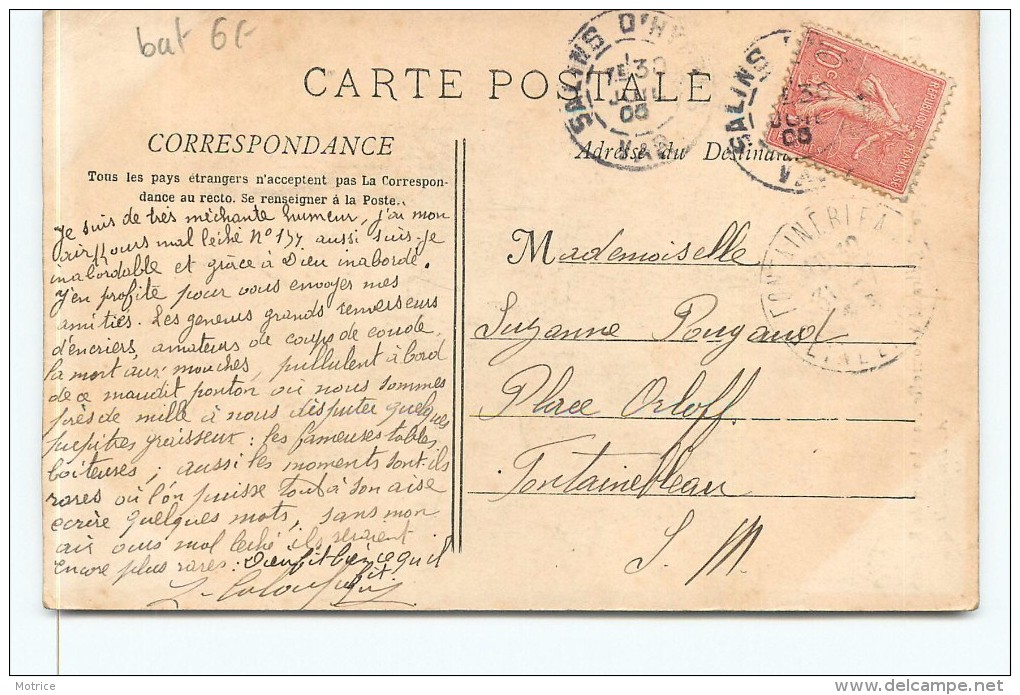 bat 6f
CARTE POSTALE
SALINS D'H
30
JUIL
05
VAR
SALINS
30
JUIL
05
VAR
10c
REPUBLIQUE FRANÇAISE
CORRESPONDANCE
Tous les pays étrangers n'acceptent pas La Correspon-
dance au recto. Se renseigner à la Poste.
Adresse du Destinataire
Je suis de très méchante humeur, j'ai mon
air ours mal léché N° 137 aussi suis-je
inabordable et grâce à Dieu inabordé.
J'en profite pour vous envoyer mes
amitiés. Les gêneurs grands renverseurs
d'encriers, amateurs de coups de coude,
la mort aux mouches, pullulent à bord
de ce maudit ponton où nous sommes
près de mille à nous disputer quelques
pupitres graisseux : les fameuses tables
boiteuses ; aussi les moments sont-ils
rares où l'on puisse tout à son aise
écrire quelques mots, sans mon
air ours mal léché ils seraient
encore plus rares. Dieu fit bien ce qu'il
fit.
Mademoiselle
Suzanne Pougaud
Place Orloff
Fontainebleau
S. M.
FONTAINEBLEAU
Motrice
www.delcampe.net